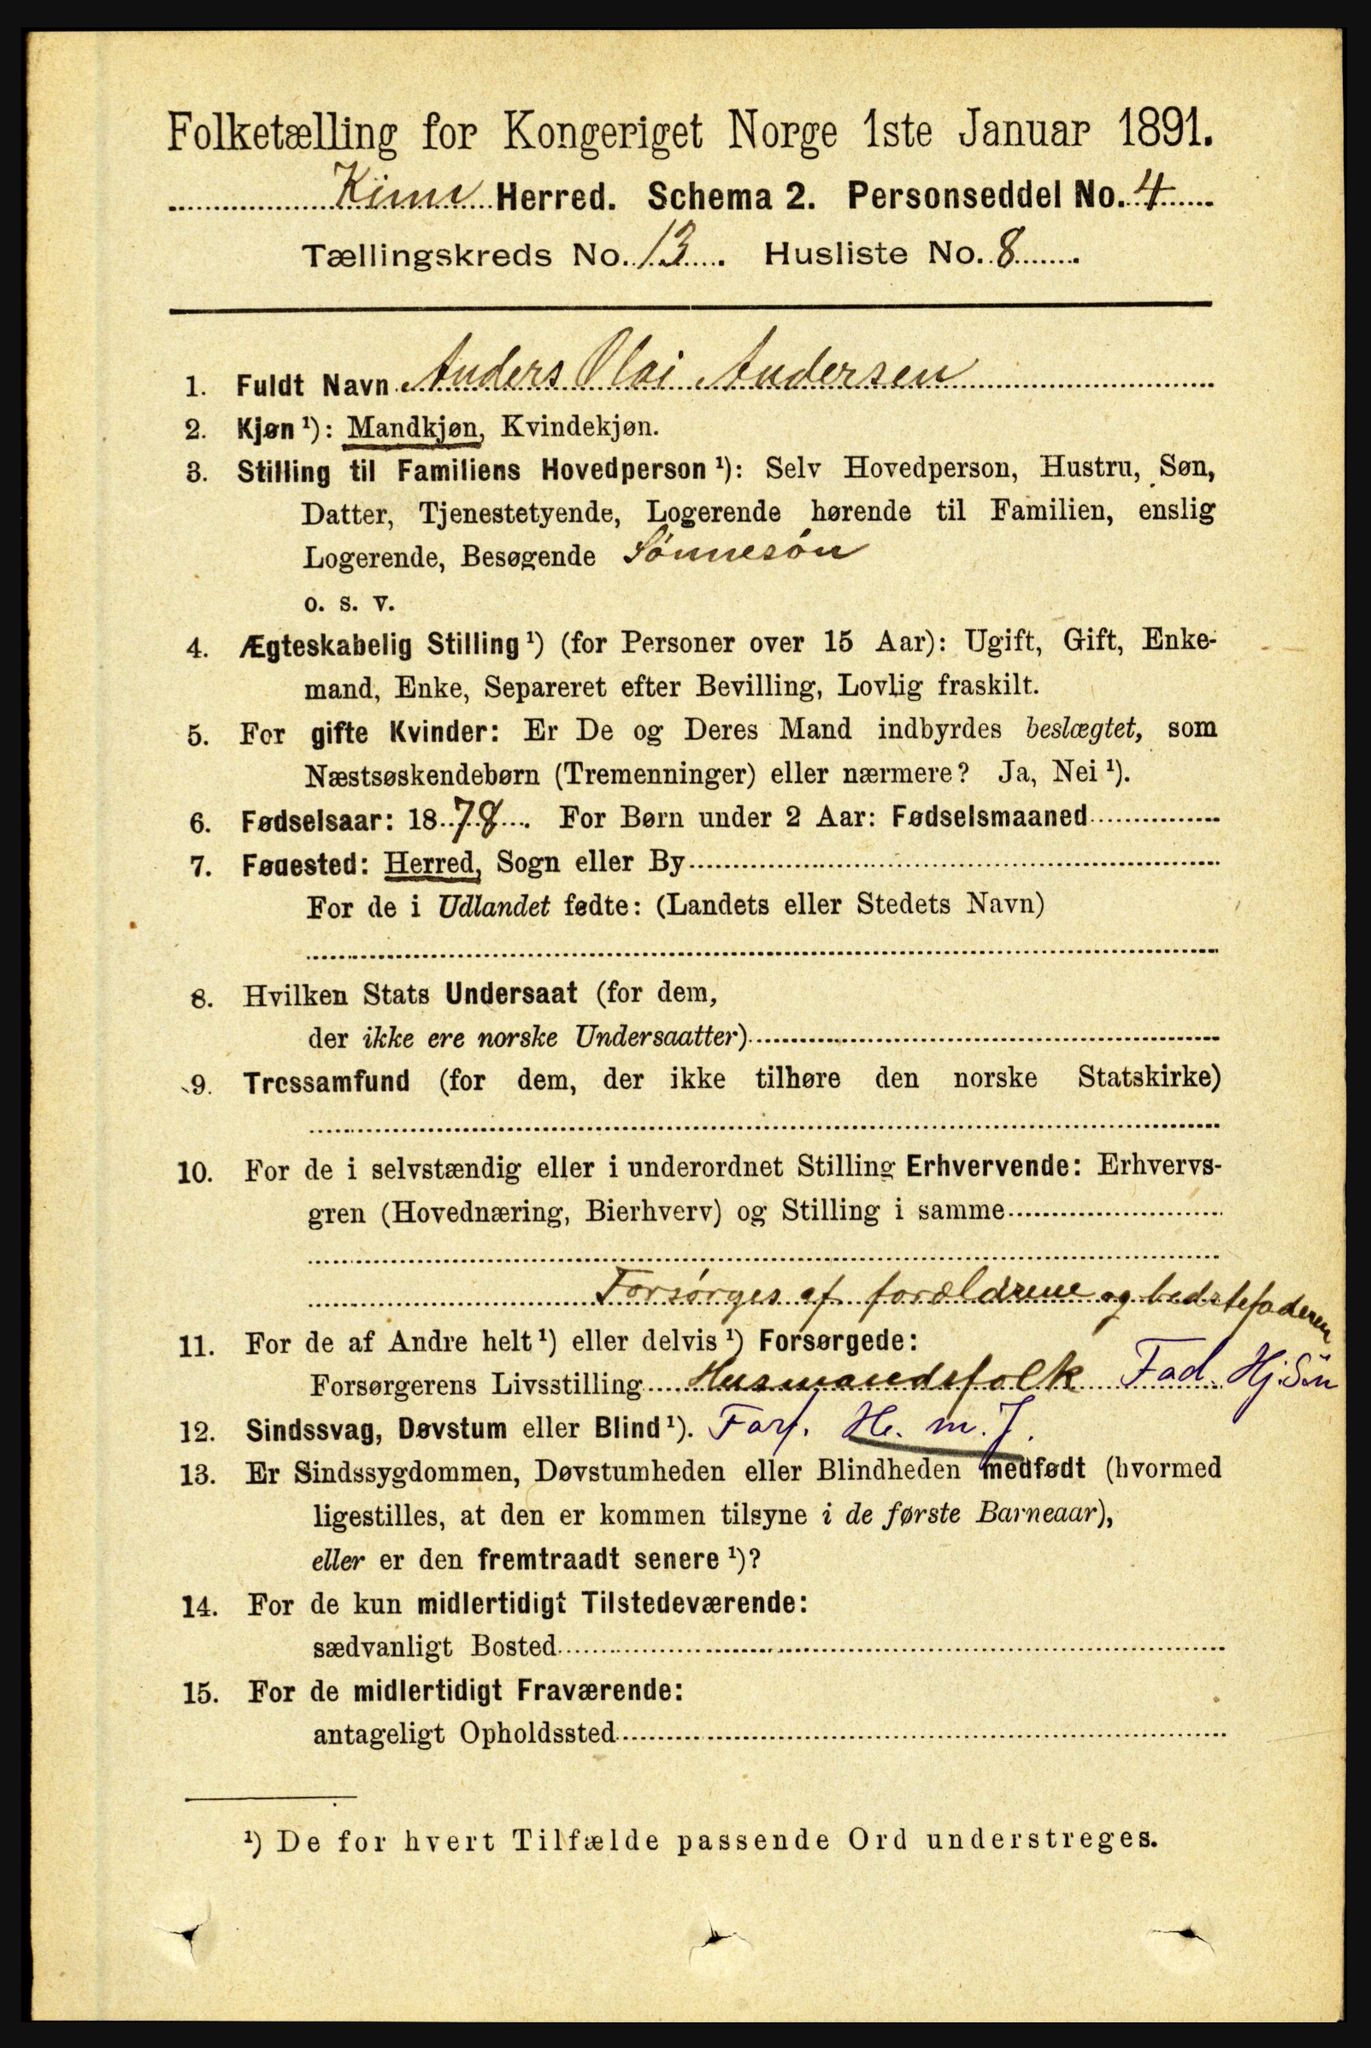 Folketælling for Kongeriget Norge 1ste Januar 1891.
Kinn Herred. Schema 2. Personseddel No. 4
Tællingskreds No. 13. Husliste No. 8
1. Fuldt Navn Anders Olai Andersen
2. Kjøn ¹): Mandkjøn, Kvindekjøn.
3. Stilling til Familiens Hovedperson ¹): Selv Hovedperson, Hustru, Søn,
Datter, Tjenestetyende, Logerende hørende til Familien, enslig
Logerende, Besøgende Sønnesøn
o. s. v.
4. Ægteskabelig Stilling ¹) (for Personer over 15 Aar): Ugift, Gift, Enke-
mand, Enke, Separeret efter Bevilling, Lovlig fraskilt.
5. For gifte Kvinder: Er De og Deres Mand indbyrdes beslægtet, som
Næstsøskendebørn (Tremenninger) eller nærmere? Ja, Nei ¹).
6. Fødselsaar: 1878. For Børn under 2 Aar: Fødselsmaaned
7. Fødested: Herred, Sogn eller By
For de i Udlandet fødte: (Landets eller Stedets Navn)
8. Hvilken Stats Undersaat (for dem,
der ikke ere norske Undersaatter)
9. Trossamfund (for dem, der ikke tilhøre den norske Statskirke)
10. For de i selvstændig eller i underordnet Stilling Erhvervende: Erhvervs-
gren (Hovednæring, Bierhverv) og Stilling i samme
Forsørges af forældrene og bedstefaderen
11. For de af Andre helt ¹) eller delvis ¹) Forsørgede:
Forsørgerens Livsstilling Husmandsfolk Fad. Hj. Søn
12. Sindssvag, Døvstum eller Blind ¹). Farf. H. m. J.
13. Er Sindssygdommen, Døvstumheden eller Blindheden medfødt (hvormed
ligestilles, at den er kommen tilsyne i de første Barneaar),
eller er den fremtraadt senere ¹)?
14. For de kun midlertidigt Tilstedeværende:
sædvanligt Bosted
15. For de midlertidigt Fraværende:
antageligt Opholdssted
¹) De for hvert Tilfælde passende Ord understreges.